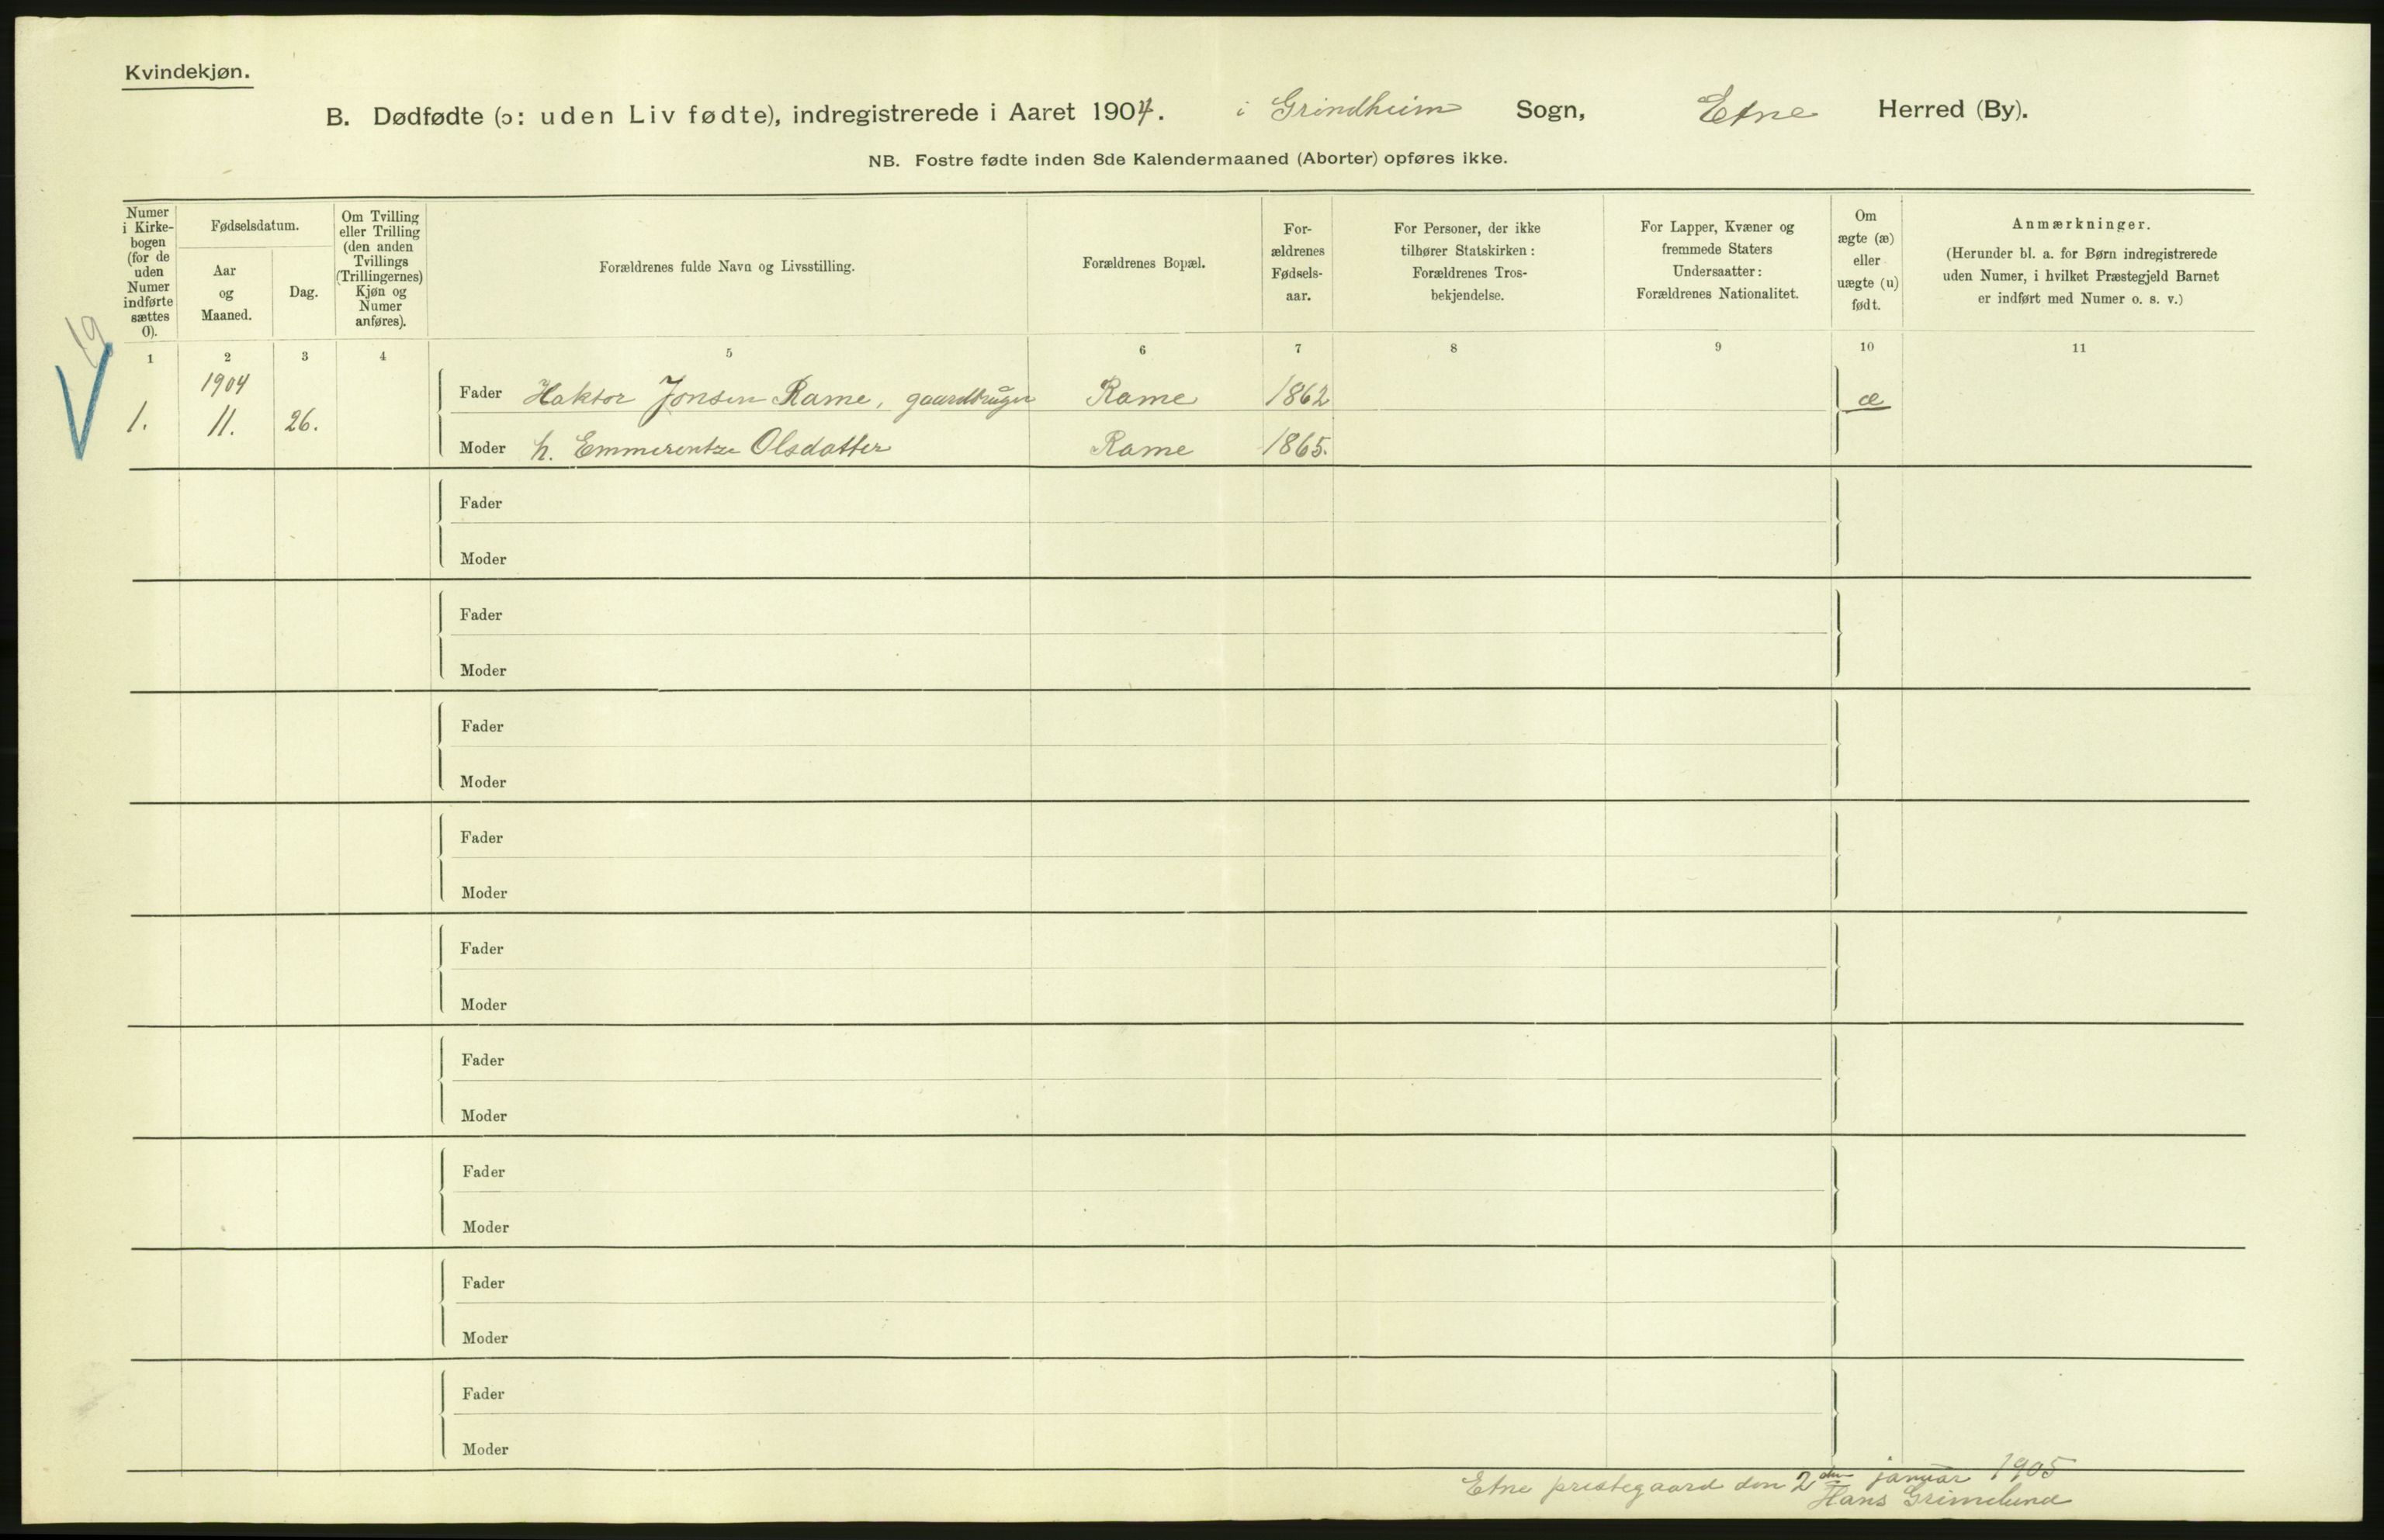 Kvindekjøn.
B. Dødfødte (ɔ: uden Liv fødte), indregistrerede i Aaret 1904. i Grindheim Sogn, Etne Herred (By).
NB. Fostre fødte inden 8de Kalendermaaned (Aborter) opføres ikke.
Numer
i Kirke-
bogen
(for de
uden
Numer
indførte
sættes
0).
Fødselsdatum.
Aar
og
Maaned.
Dag.
Om Tvilling
eller Trilling
(den anden
Tvillings
(Trillingernes)
Kjøn og
Numer
anføres).
Forældrenes fulde Navn og Livsstilling.
Forældrenes Bopæl.
For-
ældrenes
Fødsels-
aar.
For Personer, der ikke
tilhører Statskirken:
Forældrenes Tros-
bekjendelse.
For Lapper, Kvæner og
fremmede Staters
Undersaatter:
Forældrenes Nationalitet.
Om
ægte (æ)
eller
uægte (u)
født.
Anmærkninger.
(Herunder bl. a. for Børn indregistrerede
uden Numer, i hvilket Præstegjeld Barnet
er indført med Numer o. s. v.)
19
1 2 3 4 5 6 7 8 9 10 11
V
1904
1. 11. 26.
Fader Haktor Jonsen Rame, gaardbruger Rame 1862 æ
Moder h. Emmerentze Olsdatter Rame 1865.
Fader
Moder
Fader
Moder
Fader
Moder
Fader
Moder
Fader
Moder
Fader
Moder
Fader
Moder
Fader
Moder
Fader
Moder
Etne prestegaard den 2den januar 1905
Hans Grimelund